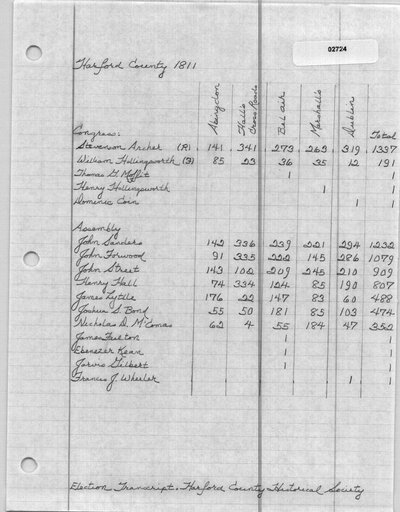 02724
Harford County 1811
Abingdon Hall's Cross Roads Bel air Marshall's Dublin Total
Congress:
Stevenson Archer (R) 141 341 273 263 319 1337
William Hollingsworth (F) 85 23 36 35 12 191
Thomas G. Moffit 1 1
Henry Hollingsworth 1 1
Dominic Coin 1 1
Assembly
John Sanders 142 336 239 221 294 1232
John Forwood 91 335 222 145 286 1079
John Street 143 102 209 245 210 909
Henry Hall 74 334 124 85 190 807
James Lyttle 176 22 147 83 60 488
Joshua S. Bond 55 50 181 85 103 474
Nicholas D. McComas 62 4 55 184 47 352
James Fulton 1 1
Ebenezer Kean 1 1
Jarvis Gilbert 1 1
Francis J. Wheeler 1 1
Election Transcript. Harford County Historical Society